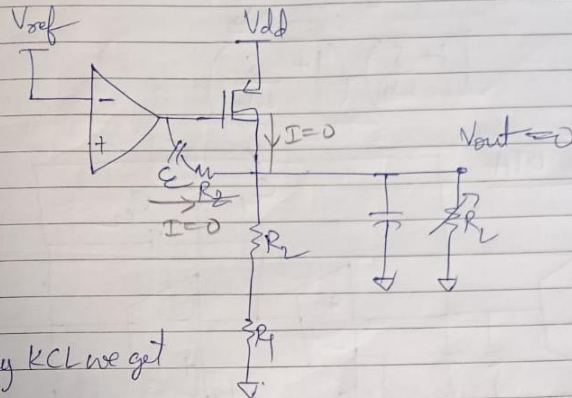 Vref
Vdd
-
+
I=0
Vout=0
Rz
I=0
R2
RL
R1
y KCL we get